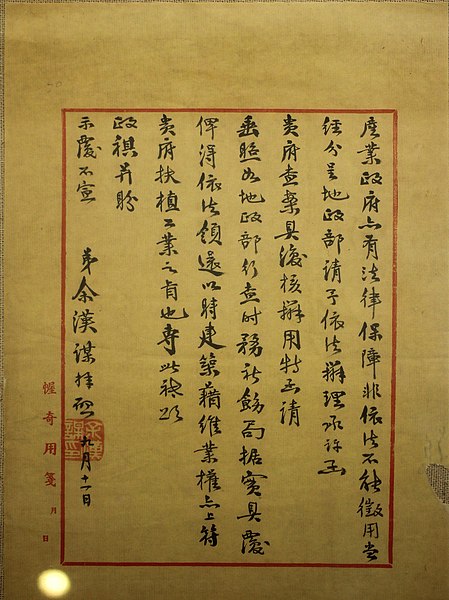 產業政府亦有法律保障非依法不能徵用當
經分呈地政部請予依法辦理承許函
貴府查案具復核辦用特函請
垂照如地政部行查時務祈飭局據實具覆
俾得依法領還以時建築藉維業權亦上符
貴府扶植工業之旨也專此祗頌
政祺并盼
示覆不宣
弟余漢謀拜啟 九月十一日
余漢謀印
幄奇用箋 月 日